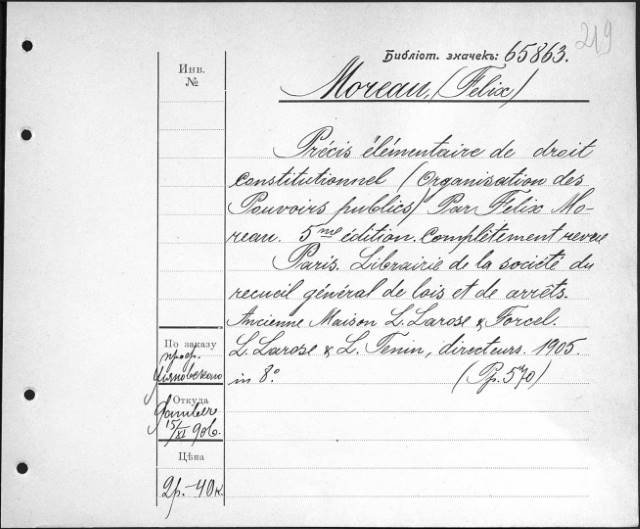 219
Библіот. значекъ: 65863.
Инв.
№
Moreau, (Felix)
Précis élémentaire de droit
constitutionnel (Organisation des
Pouvoirs publics) Par Félix Mo-
reau. 5me édition. Complètement revue
Paris. Librairie de la société du
recueil général de lois et de arrêts.
Ancienne Maison L. Larose & Forcel.
L. Larose & L. Tenin, directeurs. 1905.
in 8° (Pp. 570)
По заказу
проф.
Откуда
15/XI 906.
Цѣна
2р.-40к.